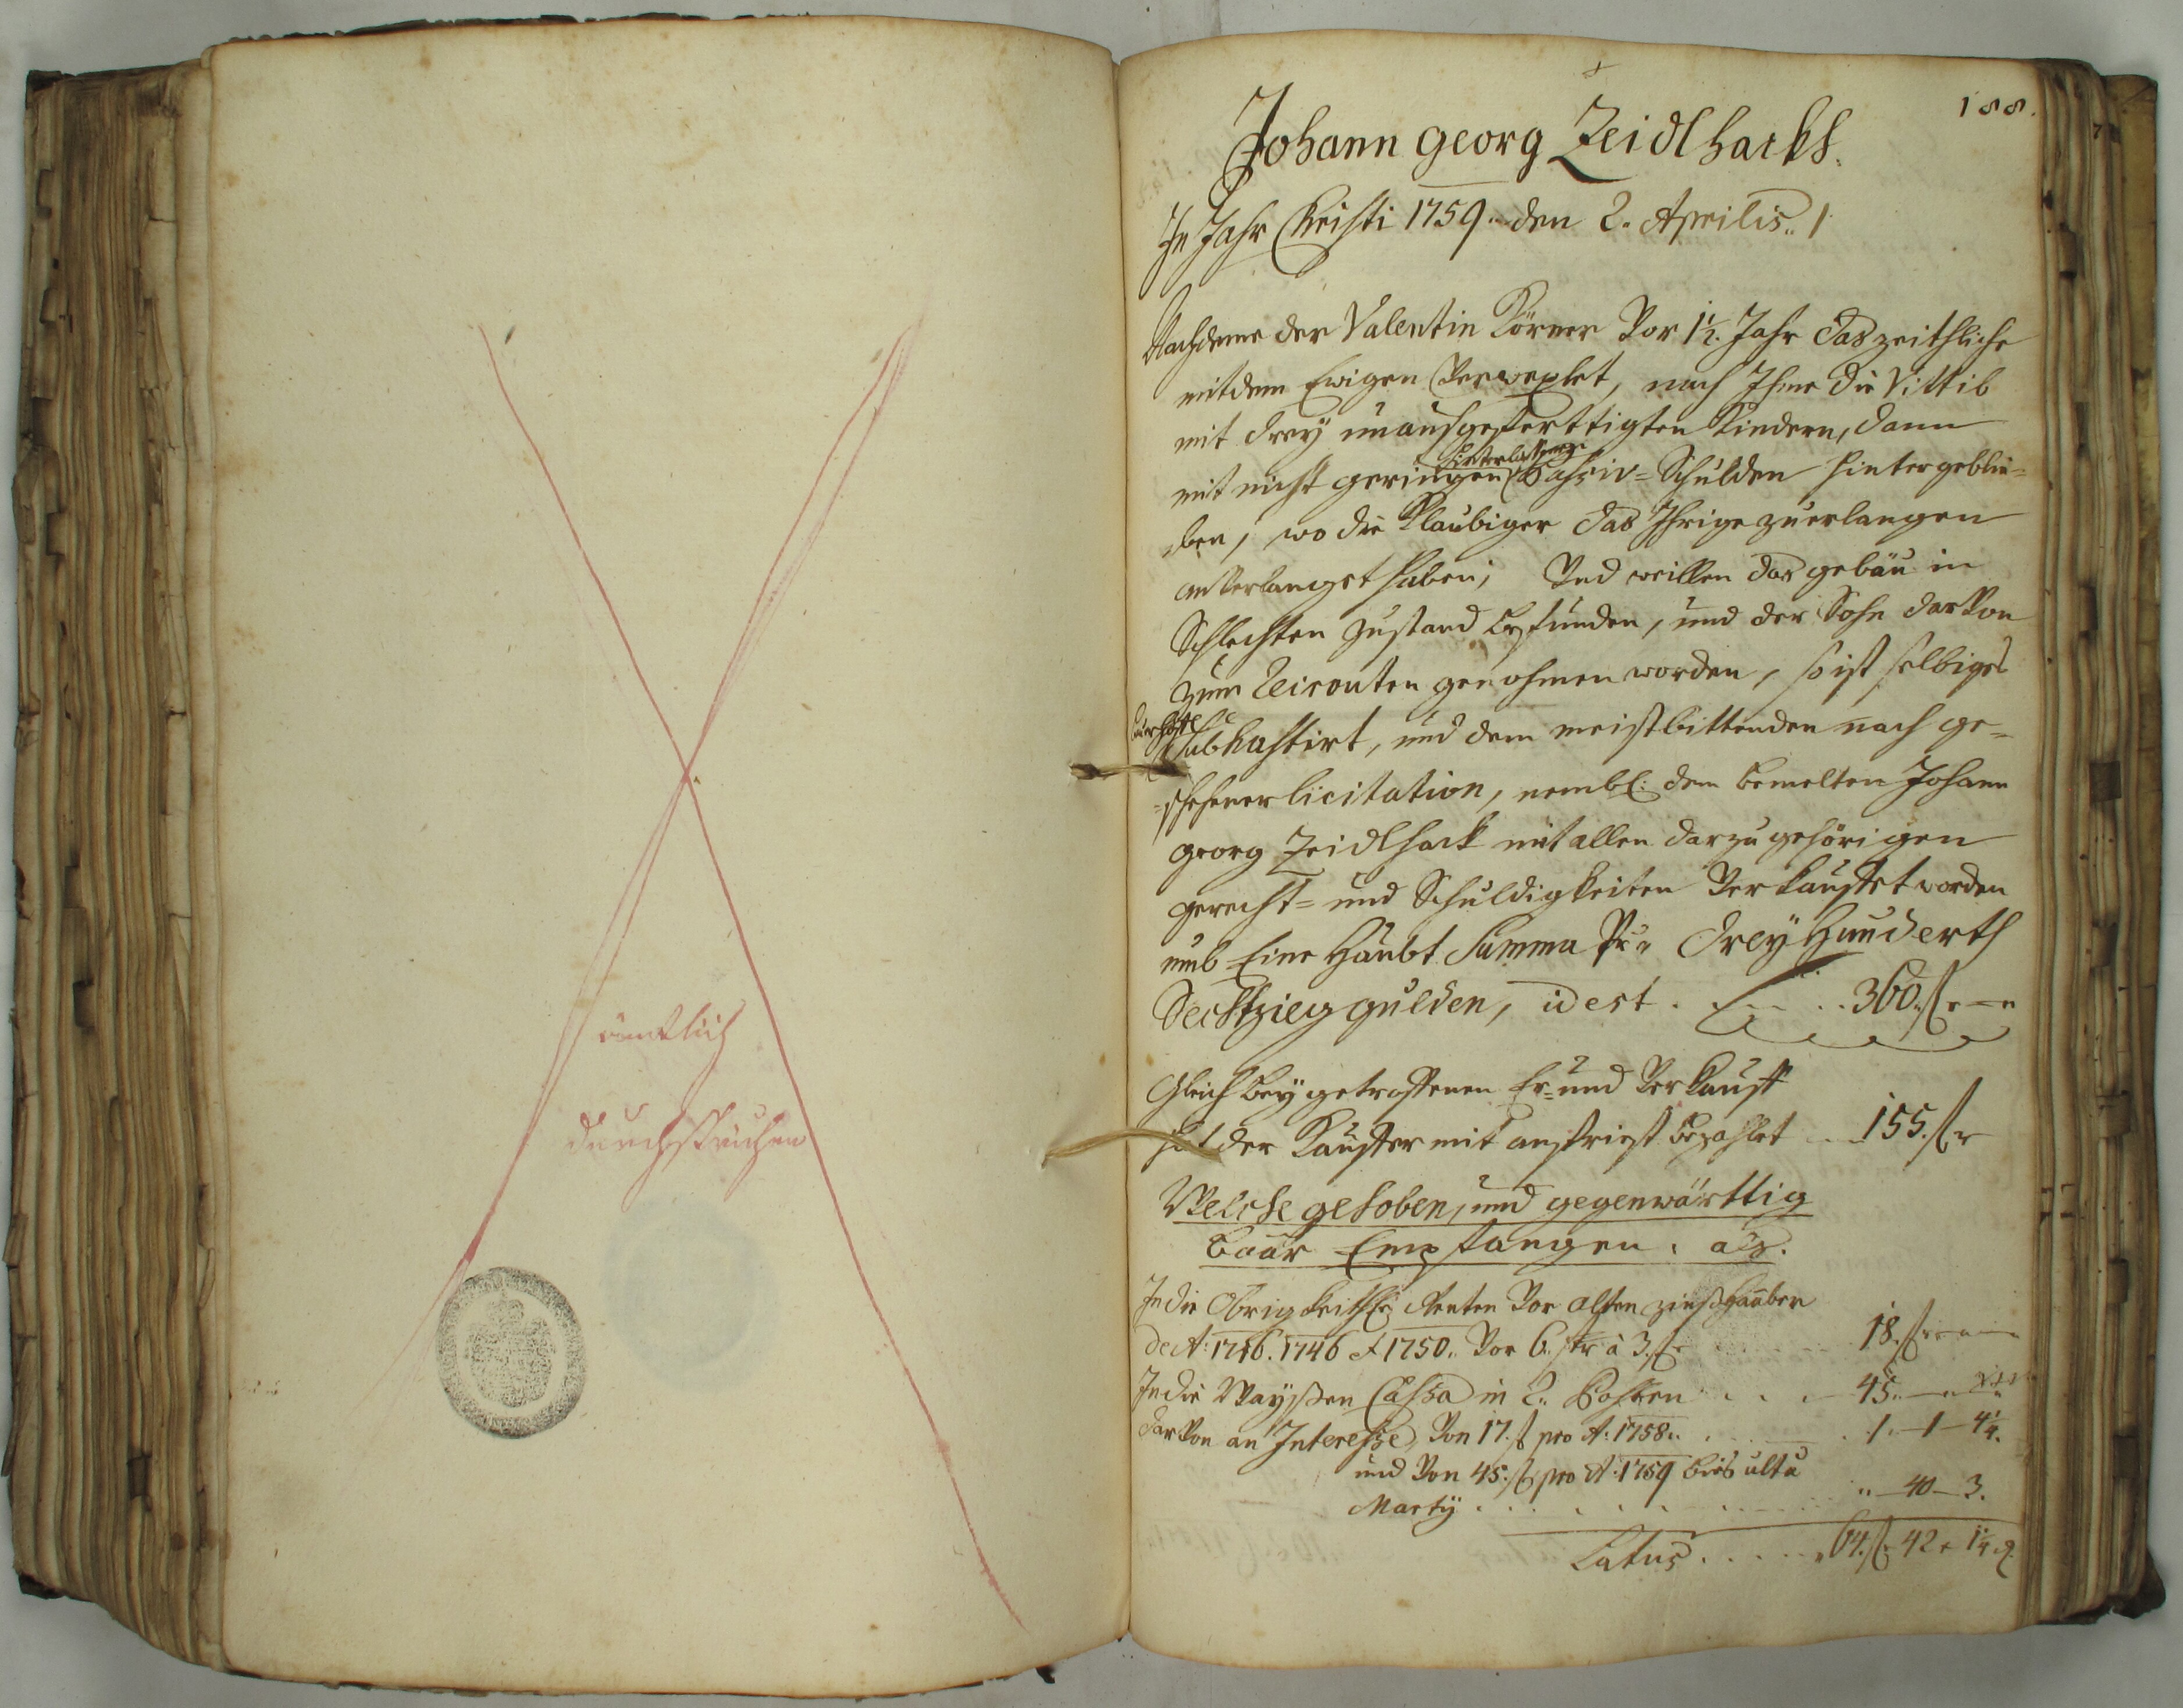 ämtlich
durchstrichen
188.
Johann georg Zeidlhacks.
In Jahr Christi 1759. den 2. Aprilis.
Nachdeme der Valentin Körner Vor 1½. Jahr das zeithliche
mit dem Ewigen Verwexlet, nach Ihme die Vittib
mit drey unausgeferttigten Kindern, dann
hinterlassene
mit nicht geringen Passiv-Schulden hintergeblie-
ben, wo die Klaubiger das Ihrige zu erlangen
anverlanget haben; Und weillen das gebäu in
Schlechten Zustand befunden, und der Sohn darvon
zum Recrouten genohmen worden, so ist selbiges
subhastirt, und dem meistbittenden nach ge-
-schehener licitation, nembl: dem bemelten Johann
georg Zeidlhack mit allen darzu gehörigen
gerecht- und Schuldigkeiten Verkauffet worden
umb Eine Haubt Summa Pr. drey Hunderth
Sechtzieg gulden, id est . . . . 360. f
Gleich bey getroffenen Er- und Verkauff
hat der Kauffer mit angefriest bezahlet . . 155. f
Welche gehoben, und gegenwärttig
baar Empfangen. als.
In die Obrigkeithl: Renten Vor alten zinßhaaber
de A: 1716. 1746 et 1750. Vor 6. str à 3. f . . . 18. f
In die Waysßen Cassa in 2. Posten . . . 45.
darvon an Interesse, Von 17. f pro A: 1758. . . . 1 - 1 - 4¼.
und Von 45. f pro A: 1759 bies ulta
Marty . . . . . . " - 40 - 3.
Latus . . . . 64. f 42 x 1¼ d.